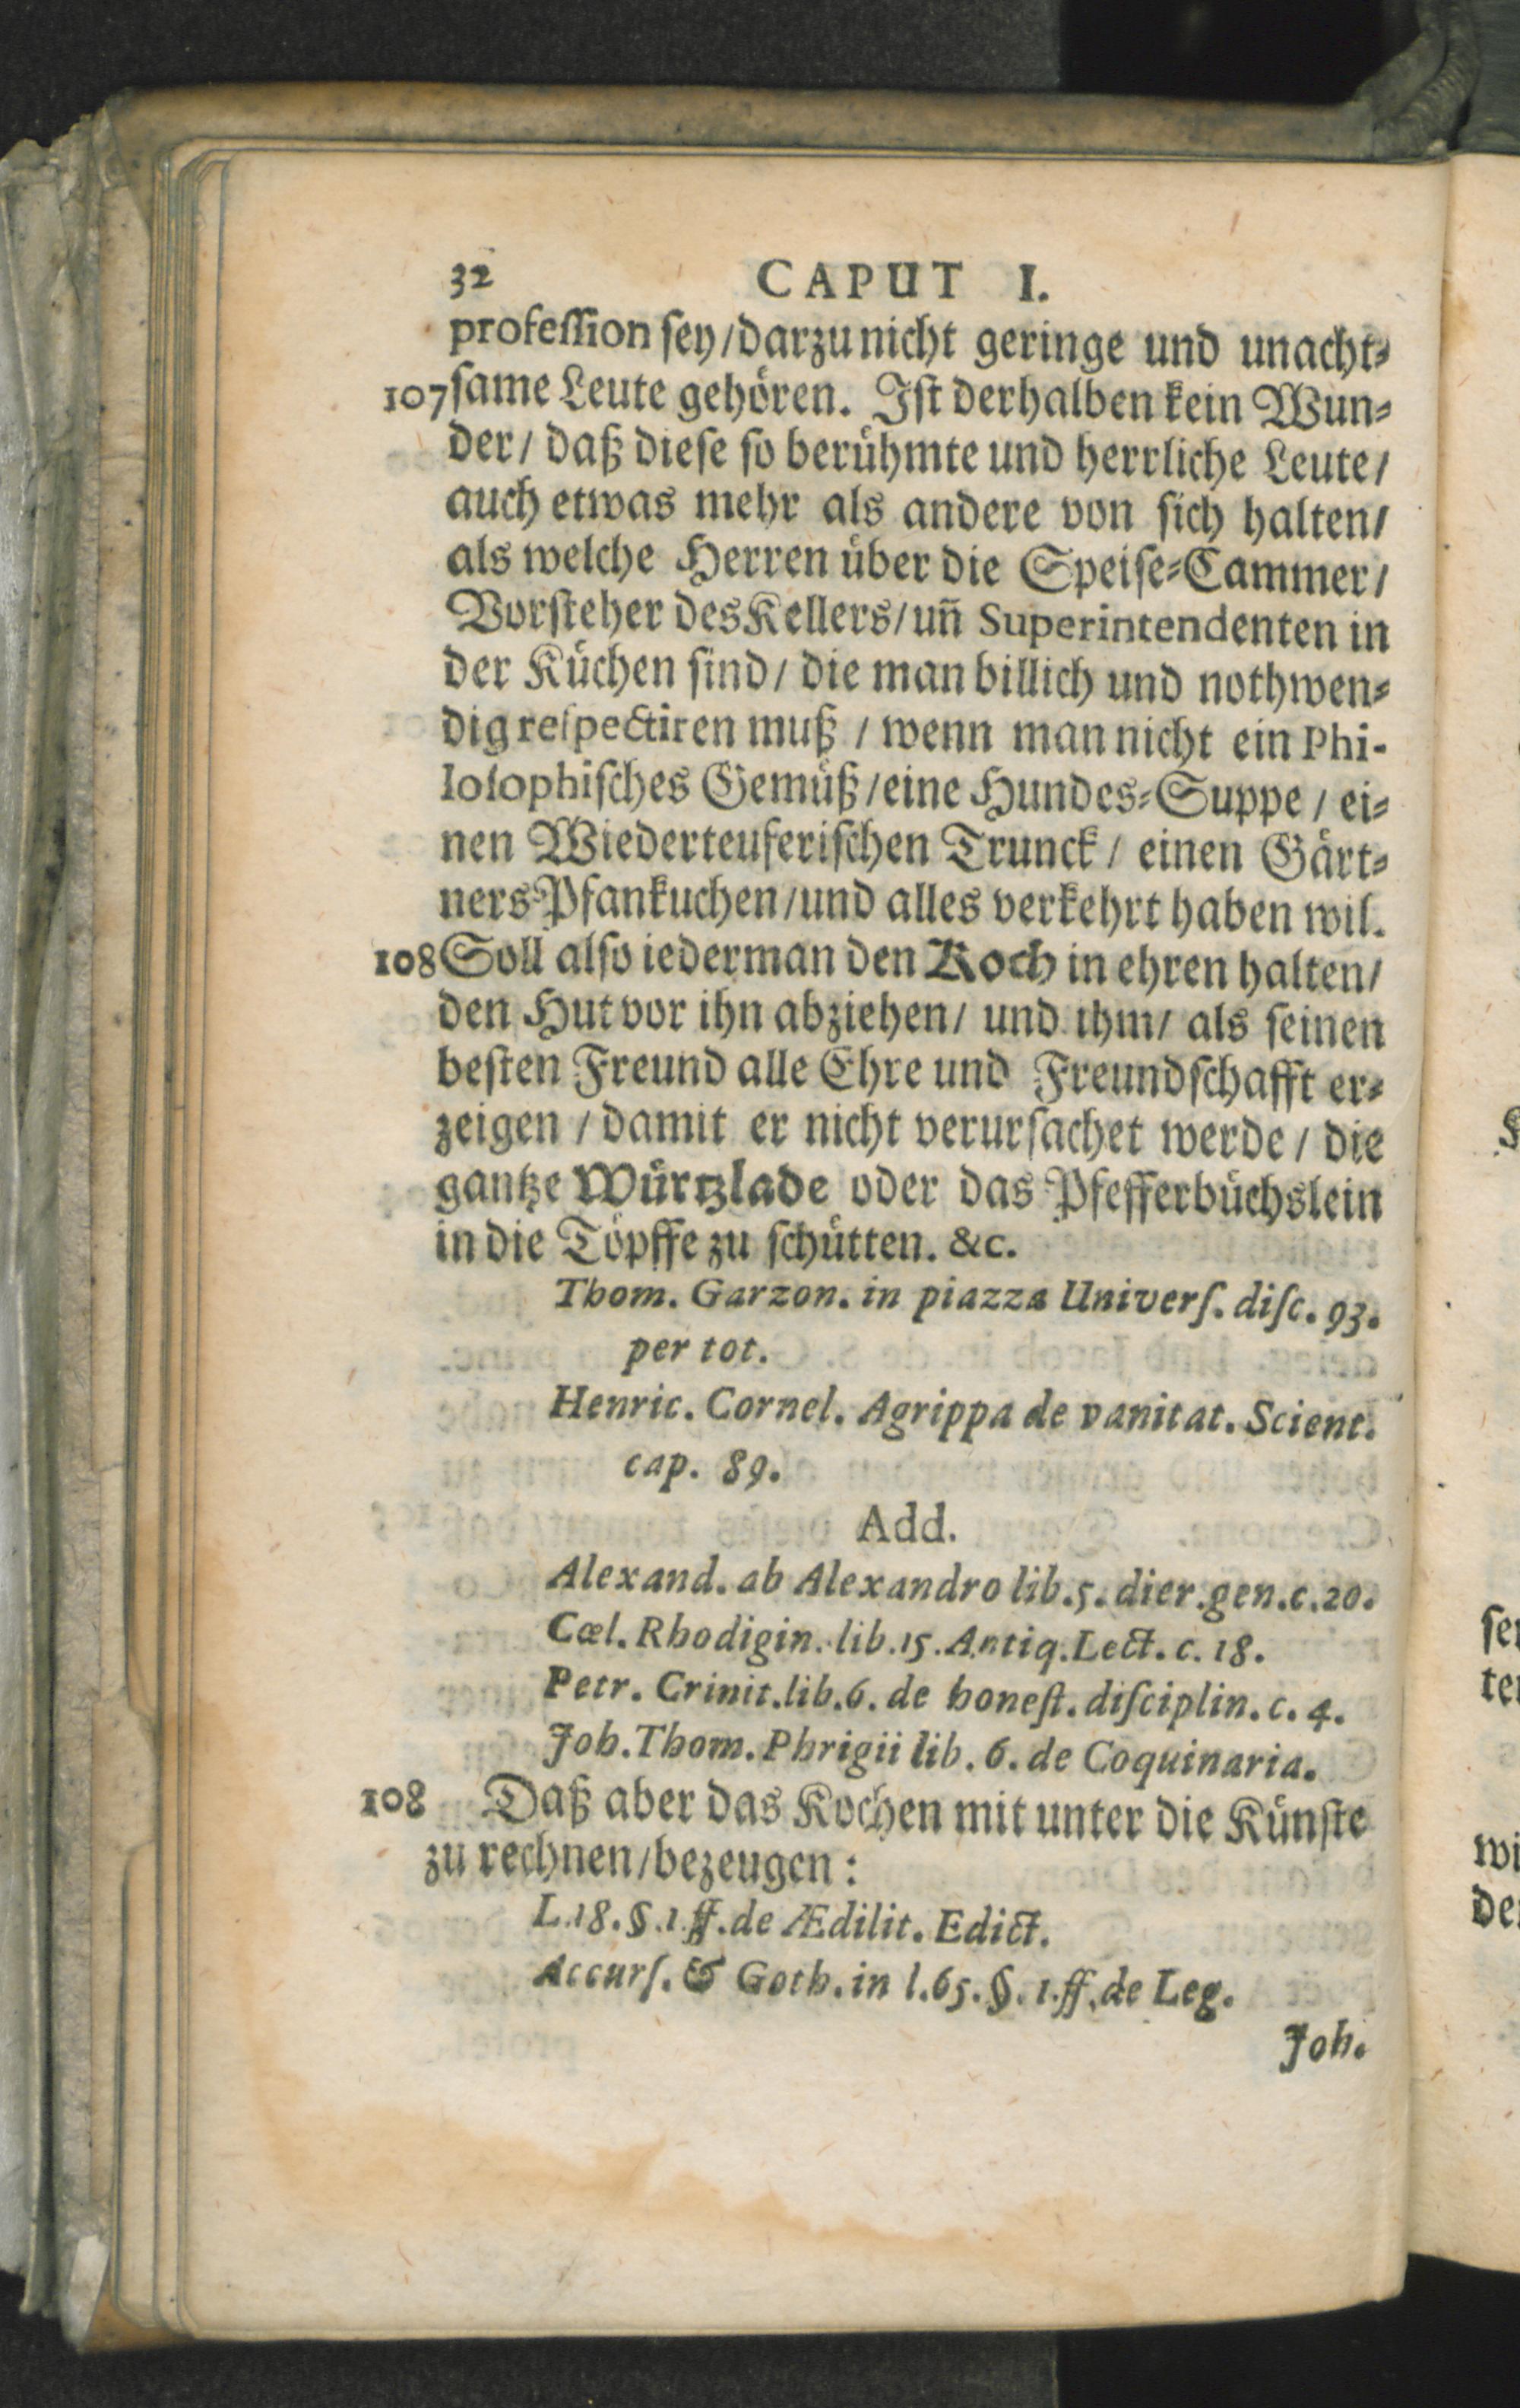 32 CAPUT I.
profeſſion ſey/ darzu nicht geringe und unacht⸗
107 ſame Leute gehören. Iſt derhalben kein Wun⸗
der/ daß dieſe ſo berühmte und herrliche Leute/
auch etwas mehr als andere von ſich halten/
als welche Herren über die Speiſe⸗Cammer/
Vorſteher des Kellers/ un̄ Superintendenten in
der Küchen ſind/ die man billich und nothwen⸗
dig reſpectiren muß / wenn man nicht ein Phi-
loſophiſches Gemüß/ eine Hundes⸗Suppe / ei⸗
nen Wiederteuferiſchen Trunck / einen Gärt⸗
ners⸗Pfankuchen/ und alles verkehrt haben wil.
108 Soll alſo iederman den Koch in ehren halten/
den Hut vor ihn abziehen/ und ihm/ als ſeinen
beſten Freund alle Ehre und Freundſchafft er⸗
zeigen / damit er nicht verurſachet werde / die
gantze Würtzlade oder das Pfefferbüchslein
in die Töpffe zu ſchütten. &c.
Thom. Garzon. in piazza Univerſ. diſc. 93.
per tot.
Henric. Cornel. Agrippa de vanitat. Scient.
cap. 89.
Add.
Alexand. ab Alexandro lib. 5. dier. gen. c. 20.
Cœl. Rhodigin. lib. 15. Antiq. Lect. c. 18.
Petr. Crinit. lib. 6. de honeſt. diſciplin. c. 4.
Joh. Thom. Phrigii lib. 6. de Coquinaria.
108 Daß aber das Kochen mit unter die Künſte
zu rechnen/ bezeugen:
L. 18. §. 1. ff. de Ædilit. Edict.
Accurſ. & Goth. in l. 65. §. 1. ff. de Leg.
Joh.